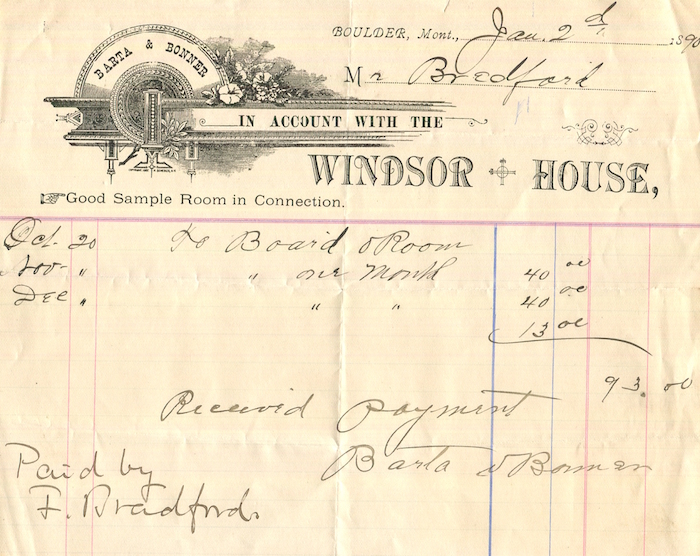 BOULDER, Mont., Jan. 2d 1890
BARTA & BONNER
Mr Bredford
IN ACCOUNT WITH THE
WINDSOR HOUSE,
Good Sample Room in Connection.
Oct. 20 To Board & Room
Nov " " one Month 40 00
Dec " " " 40 00
13 00
93.00
Received payment
Barta & Bonner
Paid by
F. Bradford.